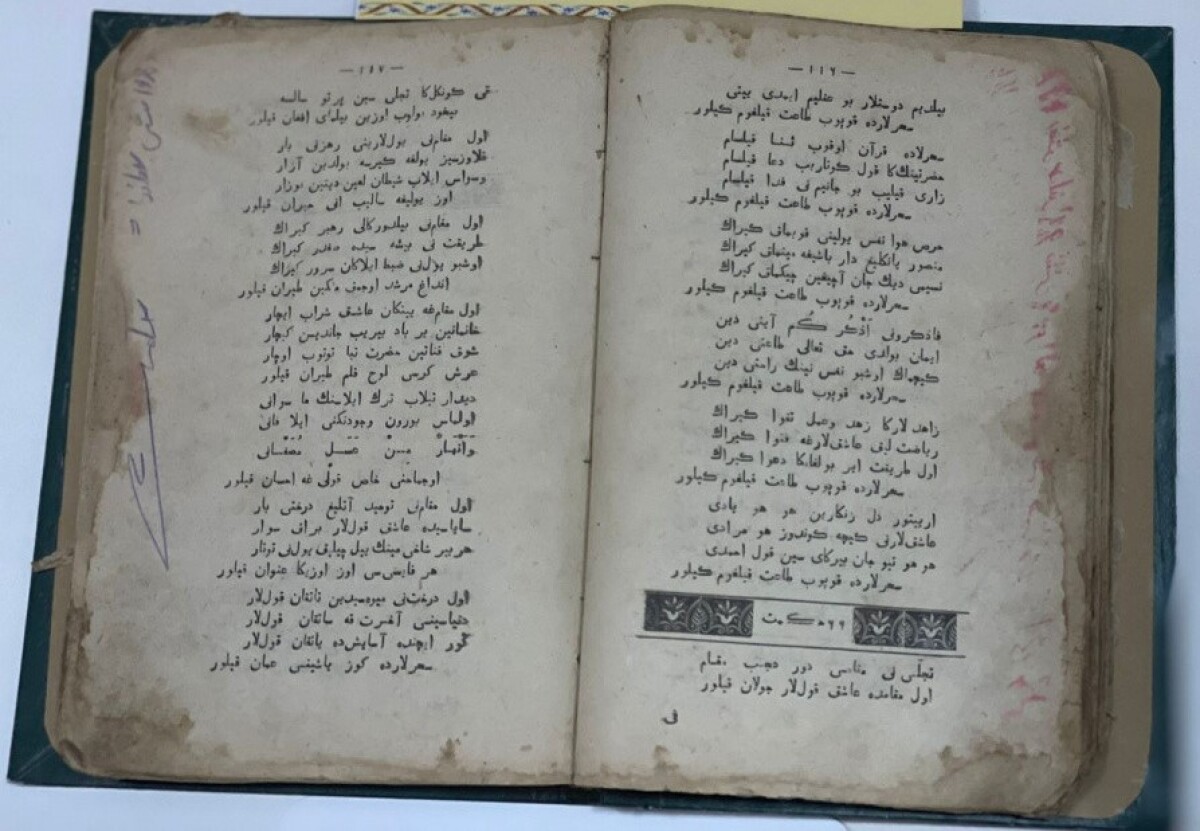 — ١١٦ —
بیلدیم دوستلار بو عقلیم ایمدی ییتی
سحرلارده قوپوب طاعت قیلغوم کیلور
سحرلاده قرآن اوقوب ثنا قیلسام
حضرتینك‌کا قول کوتاریب دعا قیلسام
زاری قیلیب بو جانیم نی فدا قیلسام
سحرلارده قوپوب طاعت قیلغوم کیلور
حرص هوا نفس یولینی قویماق کیراك
منصور یانکلیغ دار باشیغه مینماق کیراك
نسیس دیك جان آچیغین چیکماق کیراك
سحرلارده قوپوب طاعت قیلغوم کیلور
فاذکرونی أَذْکُر کُم آیتی دین
ایمان بولدی حق تعالی طاعتی دین
کیچماك اوشبو نفس نینك راحتی دین
سحرلارده قوپوب طاعت قیلغوم کیلور
زاهدلارکا زهد وعمل تقوا کیراك
ریاضت لیق عاشق‌لارغه فتوا کیراك
اول طریقت ایر بولغانکا دعوا کیراك
سحرلارده قوپوب طاعت قیلغوم کیلور
اریتور دل زنکارین هو هو یادی
عاشق‌لارنی کیچه کوندوز هو مرادی
هو هو تیو جان بیرکای سین قول احمدی
سحرلارده قوپوب طاعت قیلغوم کیلور
حکمت ٦٦
تجلّی نی مقامی دور عجب مقام
اول مقامده عاشق قول‌لار جولان قیلور
— ١١٧ —
قی کونکل‌کا تجلی سین پرتو سالسه
بیخود بولوب اوزین بیلمای افغان قیلور
اول مقام‌نی یول‌لارینی رهزنی بار
قلاوزسیز یولغه کیرسه یولدین آزار
وسواس ایلاب شیطان لعین دینین بوزار
اوز یولیغه سالیب انی حیران قیلور
اول مقام‌نی بیلدورکالی رهبر کیراك
طریقت نی بیشه سیده صفدر کیراك
اوشبو یول‌نی ضبط ایلاکان سرور کیراك
انداغ مرشد اوجماق ملکین طیران قیلور
اول مقام‌غه ییتکان عاشق شراب ایچار
خانمانین بر باد بیریب جاندین کیچار
شوق قناتین حضرت تبا توتوب اوچار
عرش کرس لوح قلم طیران قیلور
دیدار تیلاب ترك ایلاسنك ما سوانی
اولماس بورون وجودنکنی ایلا فانی
وَأَنْهَارٌ مِنْ عَسَلٍ مُصَفًّى
اوجماخنی خاص قولّی غه احسان قیلور
اول مقام‌نی توحید آتلیغ درختی بار
سایاسیده عاشق قول‌لار برانی سوار
هربیر شاخی مینك ییل چیلیق یول‌نی توتار
هر قایسی‌س اوز اوزیکا عنوان قیلور
اول درخت‌نی میوه‌سیدین تاتقان قول‌لار
دنیاسینی آخرت قه ساتقان قول‌لار
کور ایچنده آسایش‌ده یاتقان قول‌لار
سحرلارده کوز یاشینی عمان قیلور